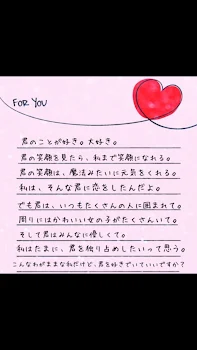 FOR YOU
君のことが好き。大好き。
君の笑顔を見たら、私まで笑顔になれる。
君の笑顔は、魔法みたいに元気をくれる。
私は、そんな君に恋をしたんだよ。
でも君は、いつもたくさんの人に囲まれて。
周りにはかわいい女の子がたくさんいて。
そして君はみんなに優しくて。
私はたまに、君を独り占めしたいって思う。
こんなわがままな私だけど、君を好きでいていいですか?